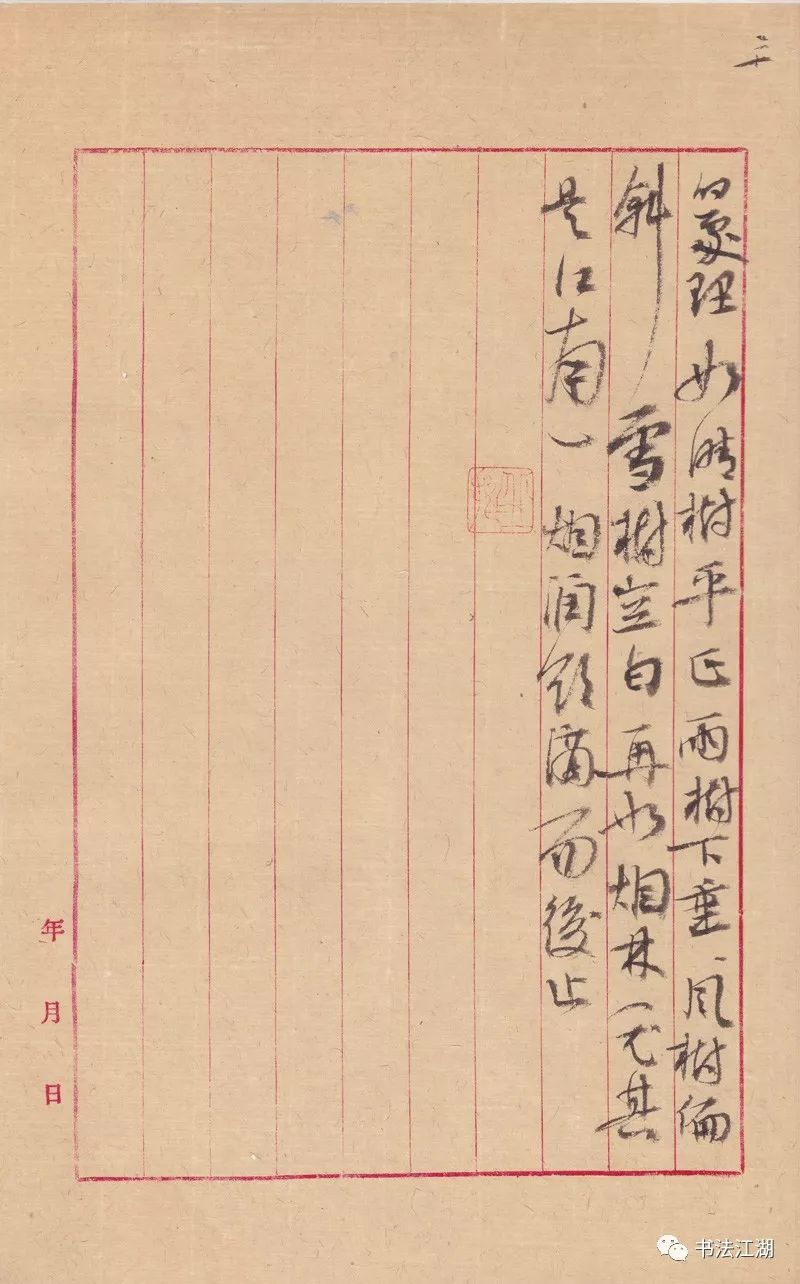 二十
理如晴樹平正雨樹下垂、風樹偏
斜雪樹空白再如烟林尤其
是江南烟潤飽滿而後止
年月日
书法江湖